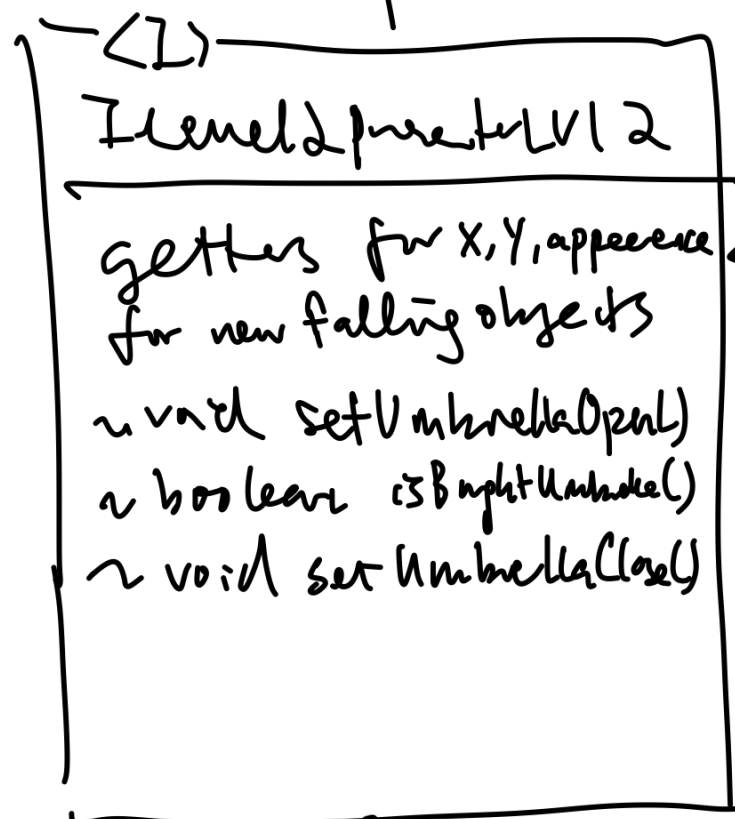 <I>
ILevel2presenterLVl2
getters for X, Y, appearence
for new falling objects
~ void setUmbrellaOpen()
~ boolean isBrightUmbrella()
~ void setUmbrellaClose()